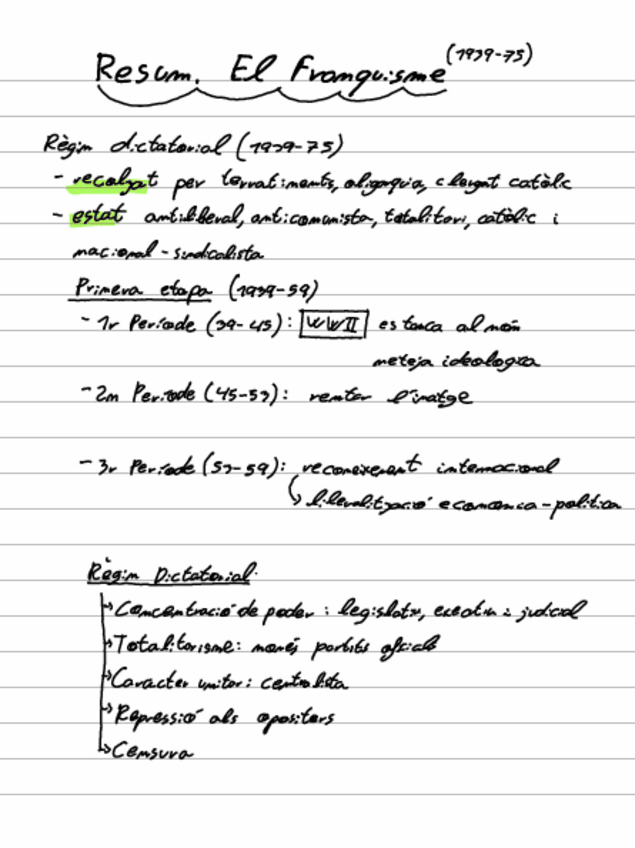 Resum. El Franquisme (1939-75)
Règim dictatorial (1939-75)
- recolzat per terratinents, oligarquia, clergat catòlic
- estat antiliberal, anticomunista, totalitari, catòlic i
nacional-sindicalista
Primera etapa (1939-59)
- 1r Període (39-45): WWII es tanca al món
neteja ideologica
- 2n Període (45-53): rentar l'imatge
- 3r Període (53-59): reconeixement internacional
liberalització economica-politica
Règim Dictatorial.
Concentració de poder: legislatiu, executiu i judicial
Totalitarisme: només partits oficials
Caracter unitari: centralista
Repressió als opositors
Censura